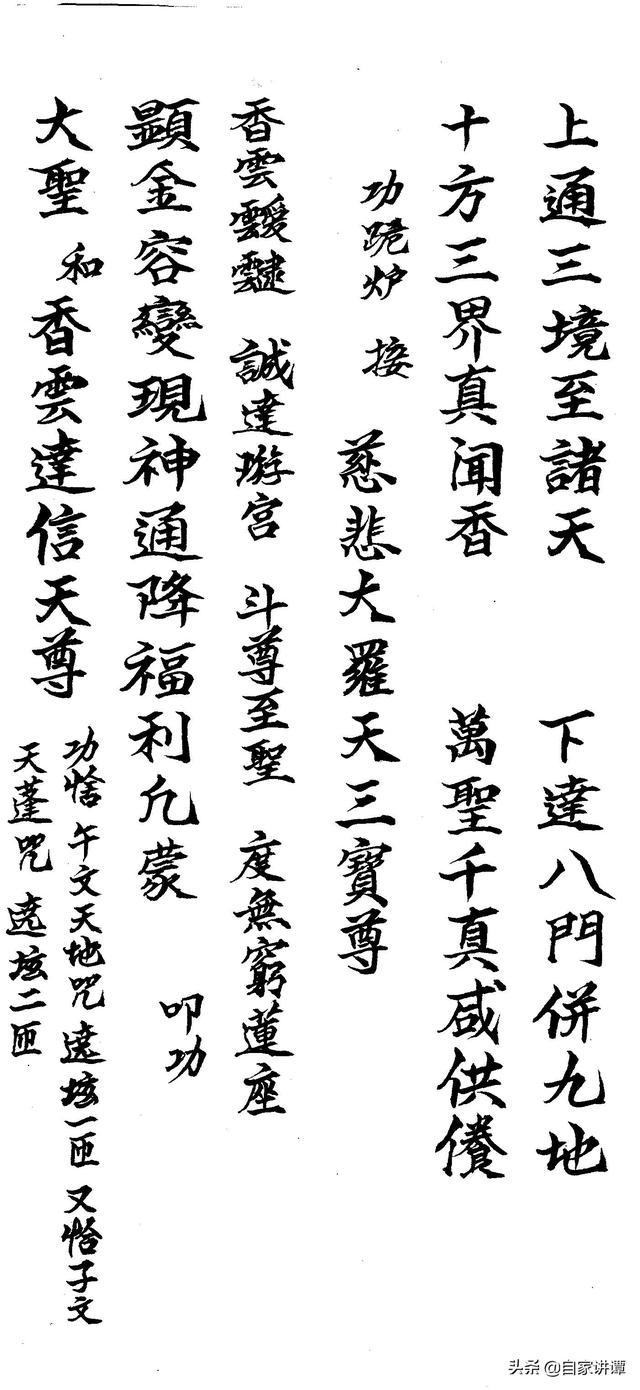 上通三境至諸天 下達八門併九地
十方三界真闻香 萬聖千真咸供養
功跪炉 接 慈悲大羅天三寶尊
香雲靉靆 誠達㳺宫 斗尊至聖 度無窮蓮座
顯金容變現神通降福利允蒙 叩功
大聖 和 香雲達信天尊
功恰 午文天地咒 遶壇一匝 又恰子文
天蓬咒 遶壇二匝
头条 @自家讲谭